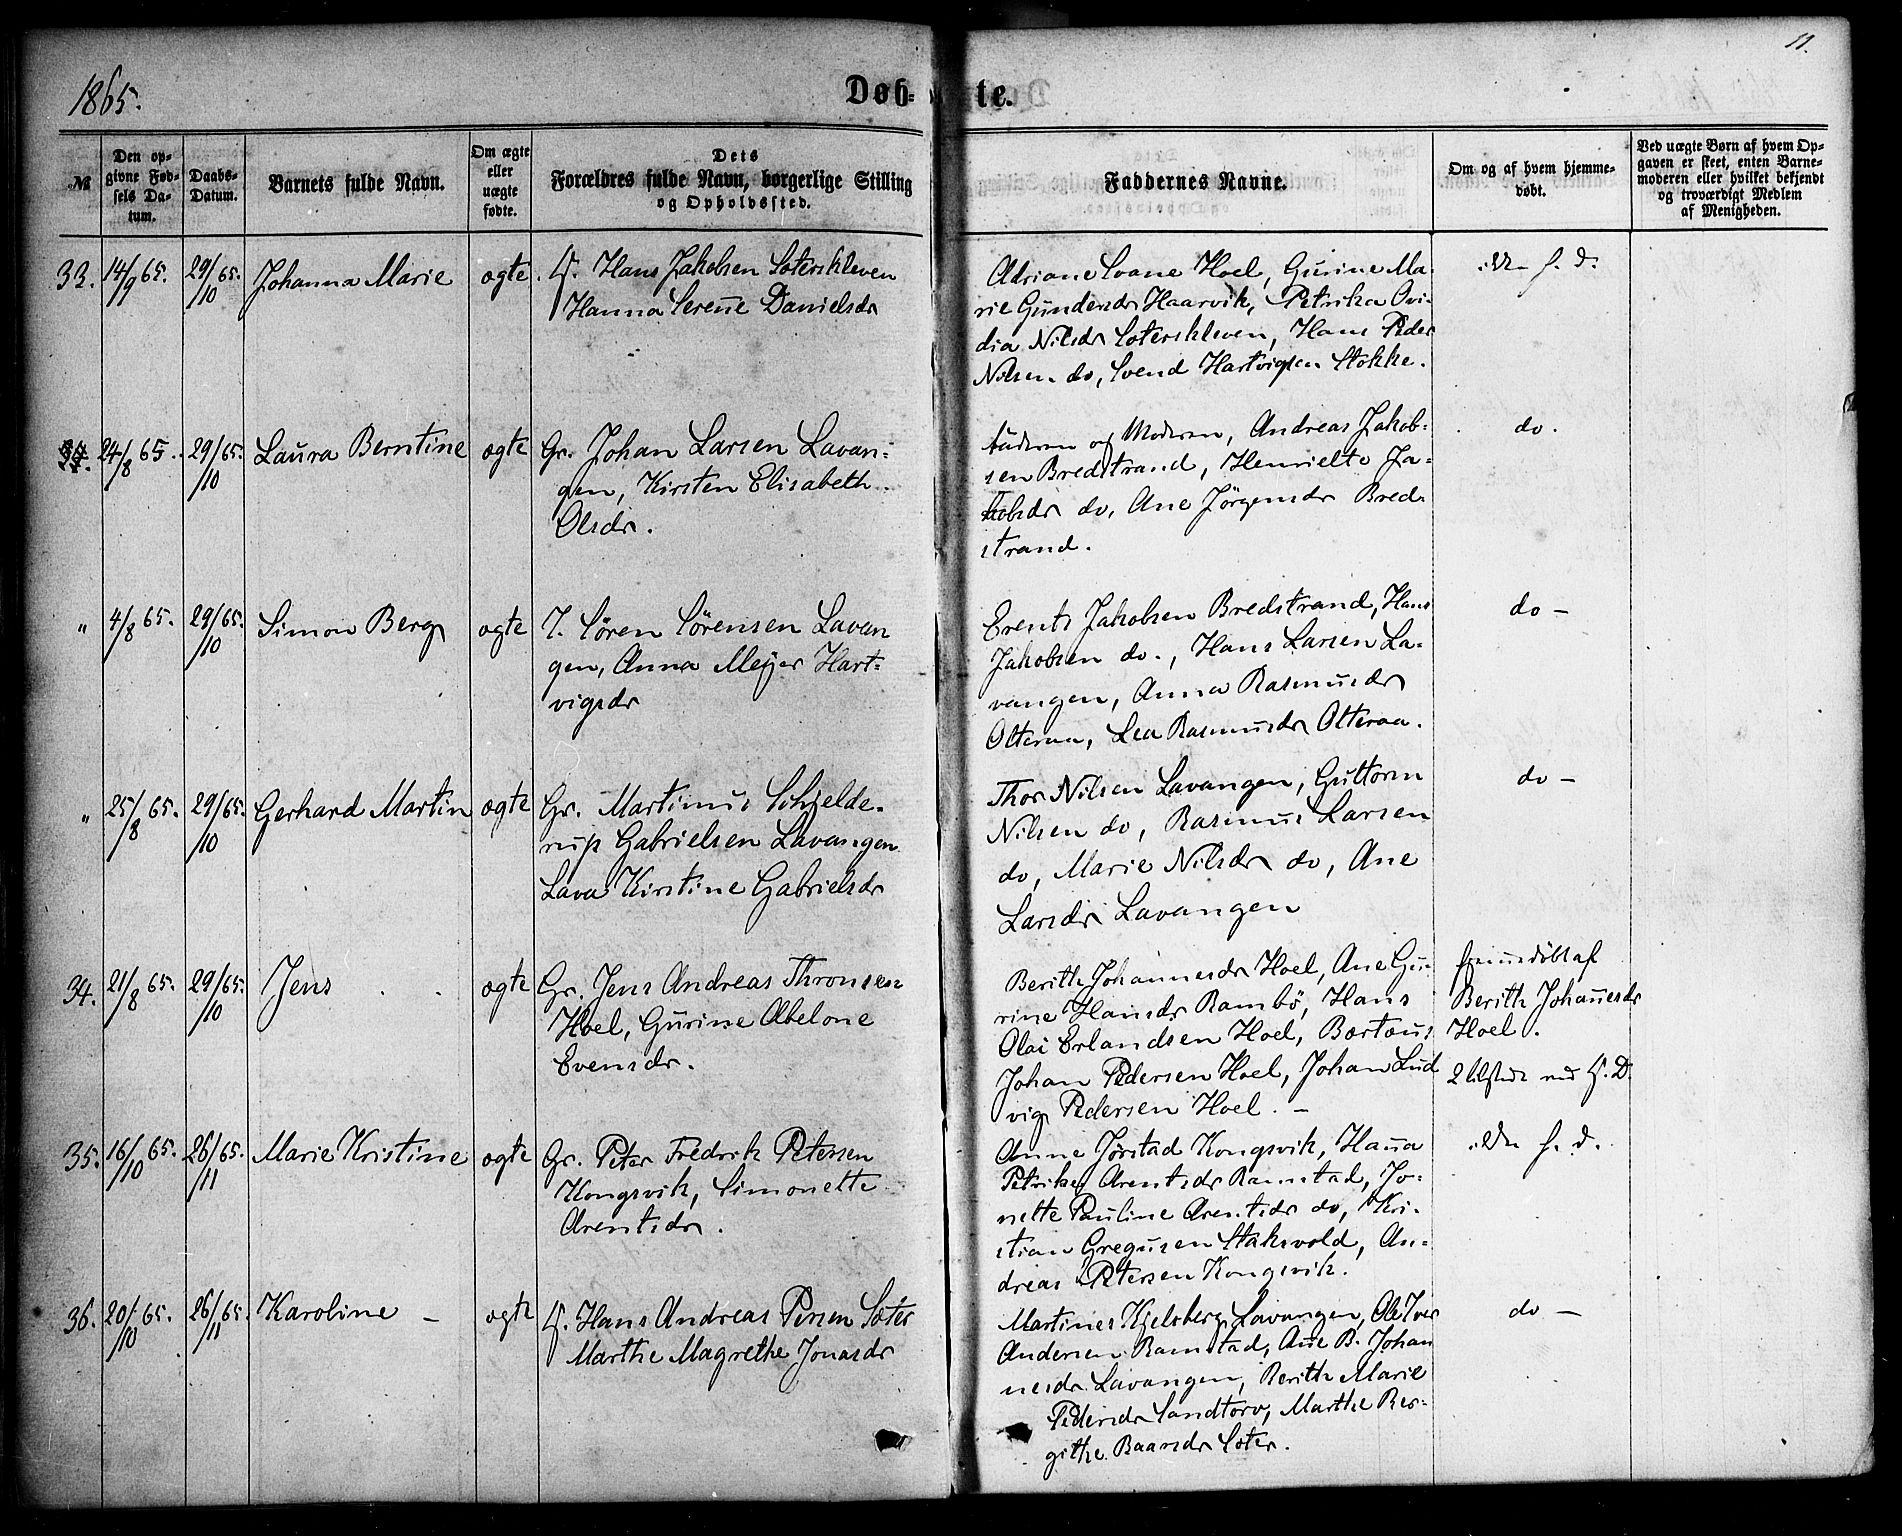 11.
1865.
Døb- te.
№
Den op-
givne Fød-
sels Da-
tum.
Daabs-
Datum.
Barnets fulde Navn.
Om ægte
eller
uægte
fødte.
Dets
Forældres fulde Navn, borgerlige Stilling
og Opholdssted.
Faddernes Navne.
Om og af hvem hjemme-
døbt.
Ved uægte Børn af hvem Op-
gaven er skeet, enten Barne-
moderen eller hvilket bekjendt
og troværdigt Medlem
af Menigheden.
33. 14/9 65. 29/10 65. Johanna Marie ægte Hans Jakobsen Soterskleven
Hanna Serene Danielsdr
Adriane Hoel, Gurine Ma-
rie Haarvik, Petrika Ovi-
dia Nilsdr Soterskleven, Hans Peder
Nilsen do, Svend Hartvigsen Stokke.
24/8 65. 29/10 65. Laura Berntine ægte Gr. Johan Larsen Lavan-
gen, Kirsten Elisabeth
Olsdr.
Moderen, Andreas Jakob-
sen Bredstrand, Henriette Ja-
kobsdr do, Ane Jørgensdr Bred-
strand.
do.
" 4/8 65. 29/10 65. Simon Berg ægte I. Sören Sörensen Lavan
gen, Anna Meÿer Hart-
vigsdr
Jakobsen Bredstrand, Hans
Jakobsen do., Hans Larsen La-
vangen, Anna Rasmusdr
Otteraa, Lea Rasmusdr Otteraa.
do -
" 25/8 65. 29/10 65. Gerhard Martin ægte Gr. Martinus Schjelde-
rup Gabrielsen Lavangen
Lava Kirstine Gabrielsdr
Thor Nilsen Lavangen, Guttorm
Nilsen do, Rasmus Larsen
do, Marie Nilsdr do, Ane
Larsdr Lavangen
do -
34. 21/8 65. 29/10 65. Jens ægte Gr. Jens Andreas Thronsen
Hoel, Gurine Abelone
Evensdr.
Berith Johannesdr Hoel, Ane Gu-
rine Hansdr Rambö, Hans
Olai Erlandsen Hoel, Bærtæus
Johan Pedersen Hoel, Johan Lud
vig Pedersen Hoel. -
af
Berith Johañesdr
Hoel.
35. 16/10 65. 26/11 65. Marie Kristine ægte Gr. Peter Fredrik Petersen
Kongsvik, Simonette
Arentsdr.
Anne Jørstad Kongsvik, Hana
Petrikke Arentsdr Ramstad, Jo-
nette Pauline Arentsdr do, Kri-
stian Gregusen Staksvold, An-
dreas Petersen Kongsvik.
36. 20/10 65. 26/11 65. Karoline - ægte Hans Andreas Persen Soter
Marthe Magrethe Jonasdr
Martines Kjelsberg Lavangen, Ole Iver
Andersen Ramstad, Ane B. Johan
nesdr Lavangen, Berith Marie
Pedersdr Sandtorv, Marthe Ber-
githe Baarsdr Soter.
do -